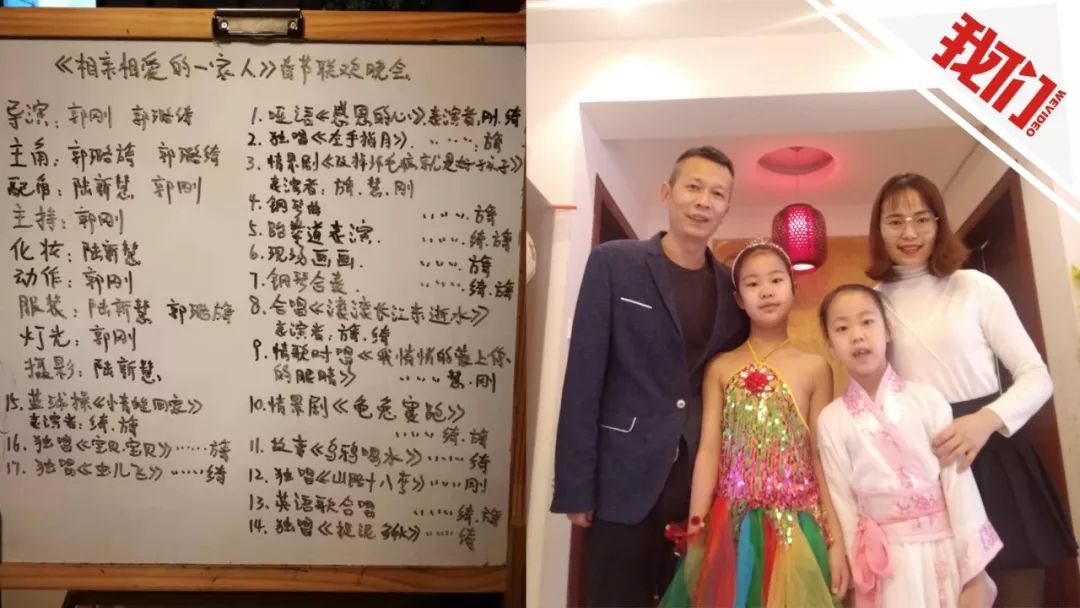 《相亲相爱的一家人》春节联欢晚会
导演：郭刚 郭璐绮
主角：郭璐旖 郭璐绮
配角：陆新慧 郭刚
主持：郭刚
化妆：陆新慧
动作：郭刚
服装：陆新慧 郭璐旖
灯光：郭刚
摄影：陆新慧
15. 篮球操《情绪回家》
表演者：绮.旖
16. 独唱《宝贝.宝贝》……旖
17. 独唱《虫儿飞》……绮
1. 哑语《感恩的心》表演者,刚.绮
2. 独唱《左手指月》. ……旖
3. 情景剧《改掉坏毛病就是好孩子》
表演者：旖.慧.刚
4. 钢琴曲 ……旖
5. 跆拳道表演. ……绮.旖
6. 现场画画. ……旖
7. 钢琴合奏. ……绮.旖
8. 合唱《滚滚长江东逝水》
表演者：旖.绮
9. 情歌对唱《我悄悄的蒙上你
的眼睛》 ……慧.刚
10. 情景剧《龟兔赛跑》
……绮.旖
11. 故事《乌鸦喝水》……绮
12. 独唱《山路十八弯》……刚
13. 英语歌合唱 ……绮.旖
14. 独唱《捉泥鳅》……绮
我们
WEVIDEO